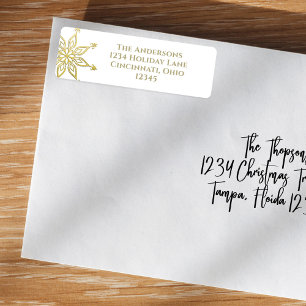 The Andersons
1234 Holiday Lane
Cincinnati, Ohio
12345
The Thopson
1234 Christmas Tr
Tampa, Floida 12